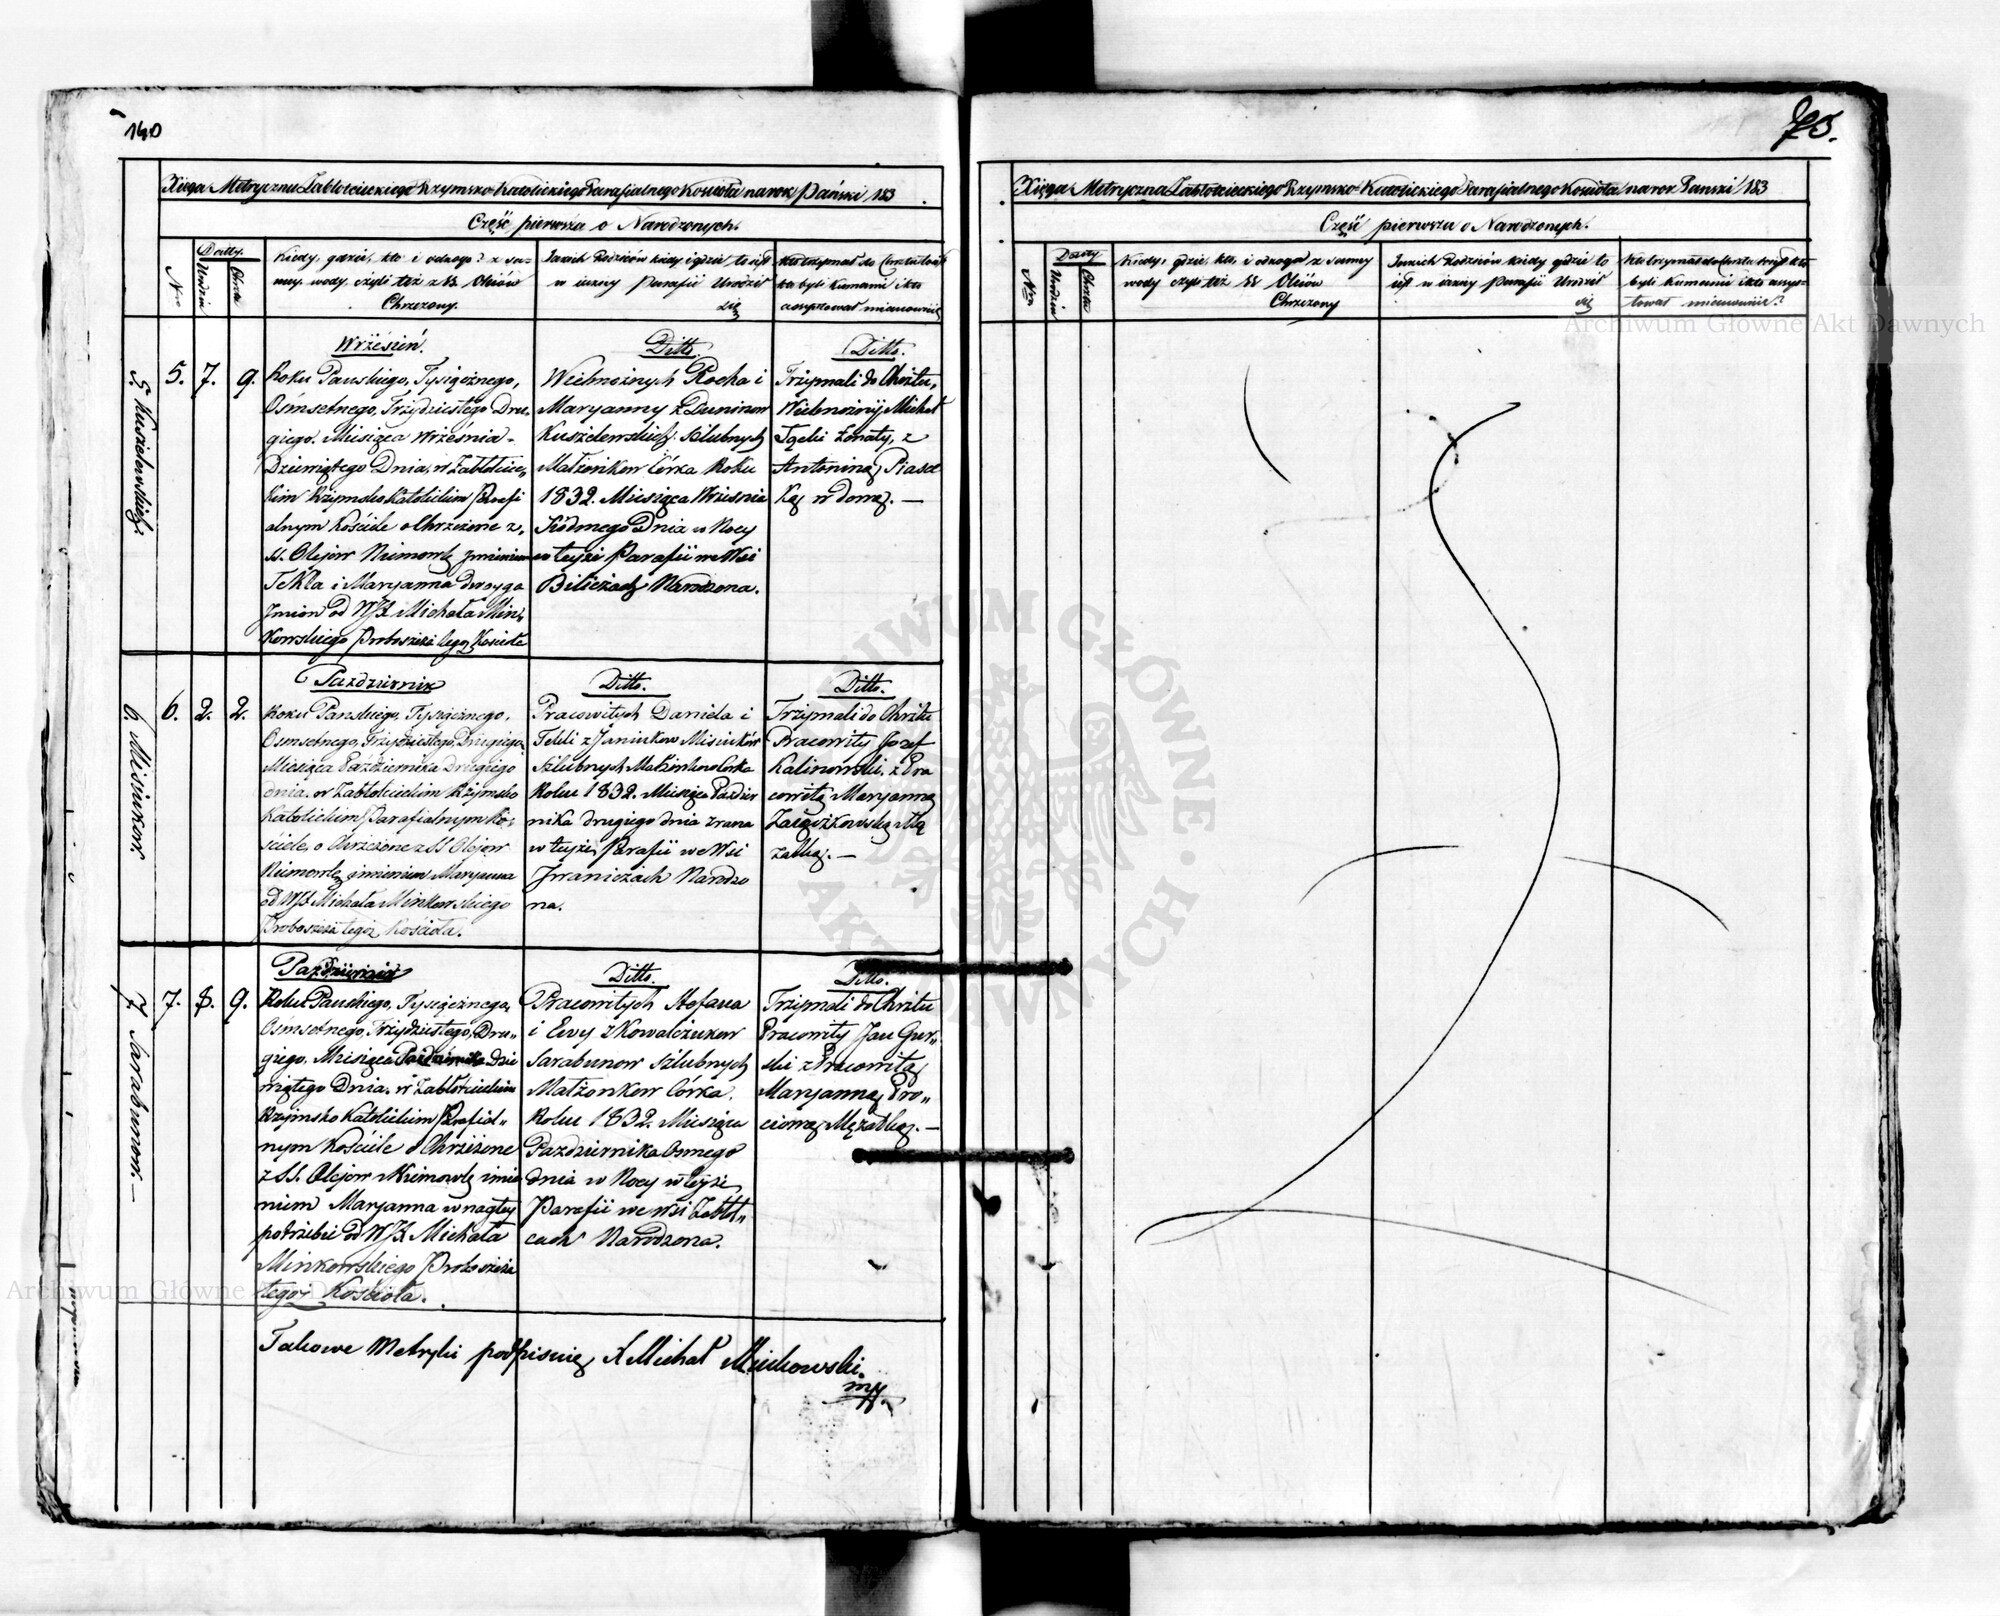 140
Xięga Metryczna Zabłocieckiego Rzymsko-Katolickiego Parafialnego Kościoła na rok Pański 183
Część pierwsza o Narodzonych.
Nro
Datty.
Urodzin
Chrztu
Kiedy, gdzie, kto i od kogo? z sa-
mey wody, czyli też z SS. Olejów
Chrzczony.
Jakich Rodziców kiedy i gdzie to iest
w iakiey Parafii Urodził
się
Kto trzymał do Chrztu
kto byli Kumami i kto
assystował mianowicie
5. Kuszelewskich
5. 7. 9.
Wrzesień.
Roku Pańskiego, Tysiącznego,
Ośmsetnego, Trzydziestego Dru-
giego. Miesiąca Września-
Dziewiątego Dnia, w Zabłociec„
kim Rzymsko Katolickim Parafi
alnym Kościele o Chrzczone z„
SS. Olejów Niemowlę Jmieniem
Tekla i Maryanna dwoyga
Jmion od WJX Michała Min„
kowskiego Proboszcza tegoż Kościoła
Ditto.
Wielmożnych Rocha i
Maryanny z Duninow
Kuszelewskich, szlubnych
Małżonkow Córka Roku
1832. Miesiąca Wrzesnia
Siódmego Dnia w Nocy
w teyże Parafii we Wsi
Biliczach Narodzona.
Ditto.
Trzymali do Chrztu,
Wielmożny Michał
Żonaty, z
Antoniną Piasec
Ką w domą. —
6. Misiukow.
6. 2. 2.
Pazdziernik
Roku Panskiego, Tysiącznego,
Osmsetnego, Trzydziestego, Drugiego
Miesiąca Pazdziernika Drugiego
dnia. w Zabłocieckim Rzymsko
Katolickim Parafialnym Ko„
ściele, o Chrzczone z SS Olejow
Niemowlę imieniem Maryanna
od WJX Michała Minkowskiego
Proboszcza tegoż Kościoła.
Ditto.
Pracowitych Daniela i
Tekli z Janiukow Misiuków
Szlubnych Małżonkow Corka
Roku 1832. Miesiąca Pazdzier
nika drugiego dnia zrana
w teyże Parafii we Wsi
Jwaniczach Narodzo
na.
Ditto.
Trzymali do Chrztu
Pracowity Jozef
Kalinowski, z Pra
cowitą Maryanną
Mę
zatką. —
7. Sarabunow. —
7. 8. 9.
Pazdziernik
Roku Panskiego, Tysiącznego,
Ośmsetnego, Trzydziestego, Dru„
giego. Miesiąca Pazdziernika Dzie
wiątego Dnia. w Zabłocieckim
Rzymsko Katolickim Parafial„
nym Kościele o Chrzczone
z SS. Olejow Niemowlę imie
niem Maryanna w nagłey
potrzebie od WJX Michała
Minkowskiego Proboszcza
tegoż Kościoła.
Ditto.
Pracowitych Stefana
i Ewy z Kowalczukow
Sarabunow szlubnych
Małżonkow Córka.
Roku 1832. Miesiąca
Pazdziernika Osmego
dnia w Nocy w teyże
Parafii we wsi Zabłot„
cach Narodzona.
Ditto.
Trzymali do Chrztu
Pracowity Jan Gur„
ski z Pracowitą
Maryanną Pro„
ciową Mężatką. —
Takowe Metryki podpisuię X Michał Minkowski.
mp.
75.
Xięga Metryczna Zabłocieckiego Rzymsko-Katolickiego Parafialnego Kościoła na rok Panski 183
Część pierwsza o Narodzonych.
Nro
Datty
Urodzin
Chrztu
Kiedy, gdzie, kto, i od kogo z samey
wody czyli też SS Olejów
Chrzczony
Jakich Rodziców kiedy gdzie to
iest w iakiey Parafii Urodził
się
Kto trzymał do Chrztu kto
byli Kumami i kto assys-
tował mianowicie?
Archiwum Główne Akt Dawnych
ARCHIWUM GŁÓWNE AKT DAWNYCH
Archiwum Główne Akt Dawnych